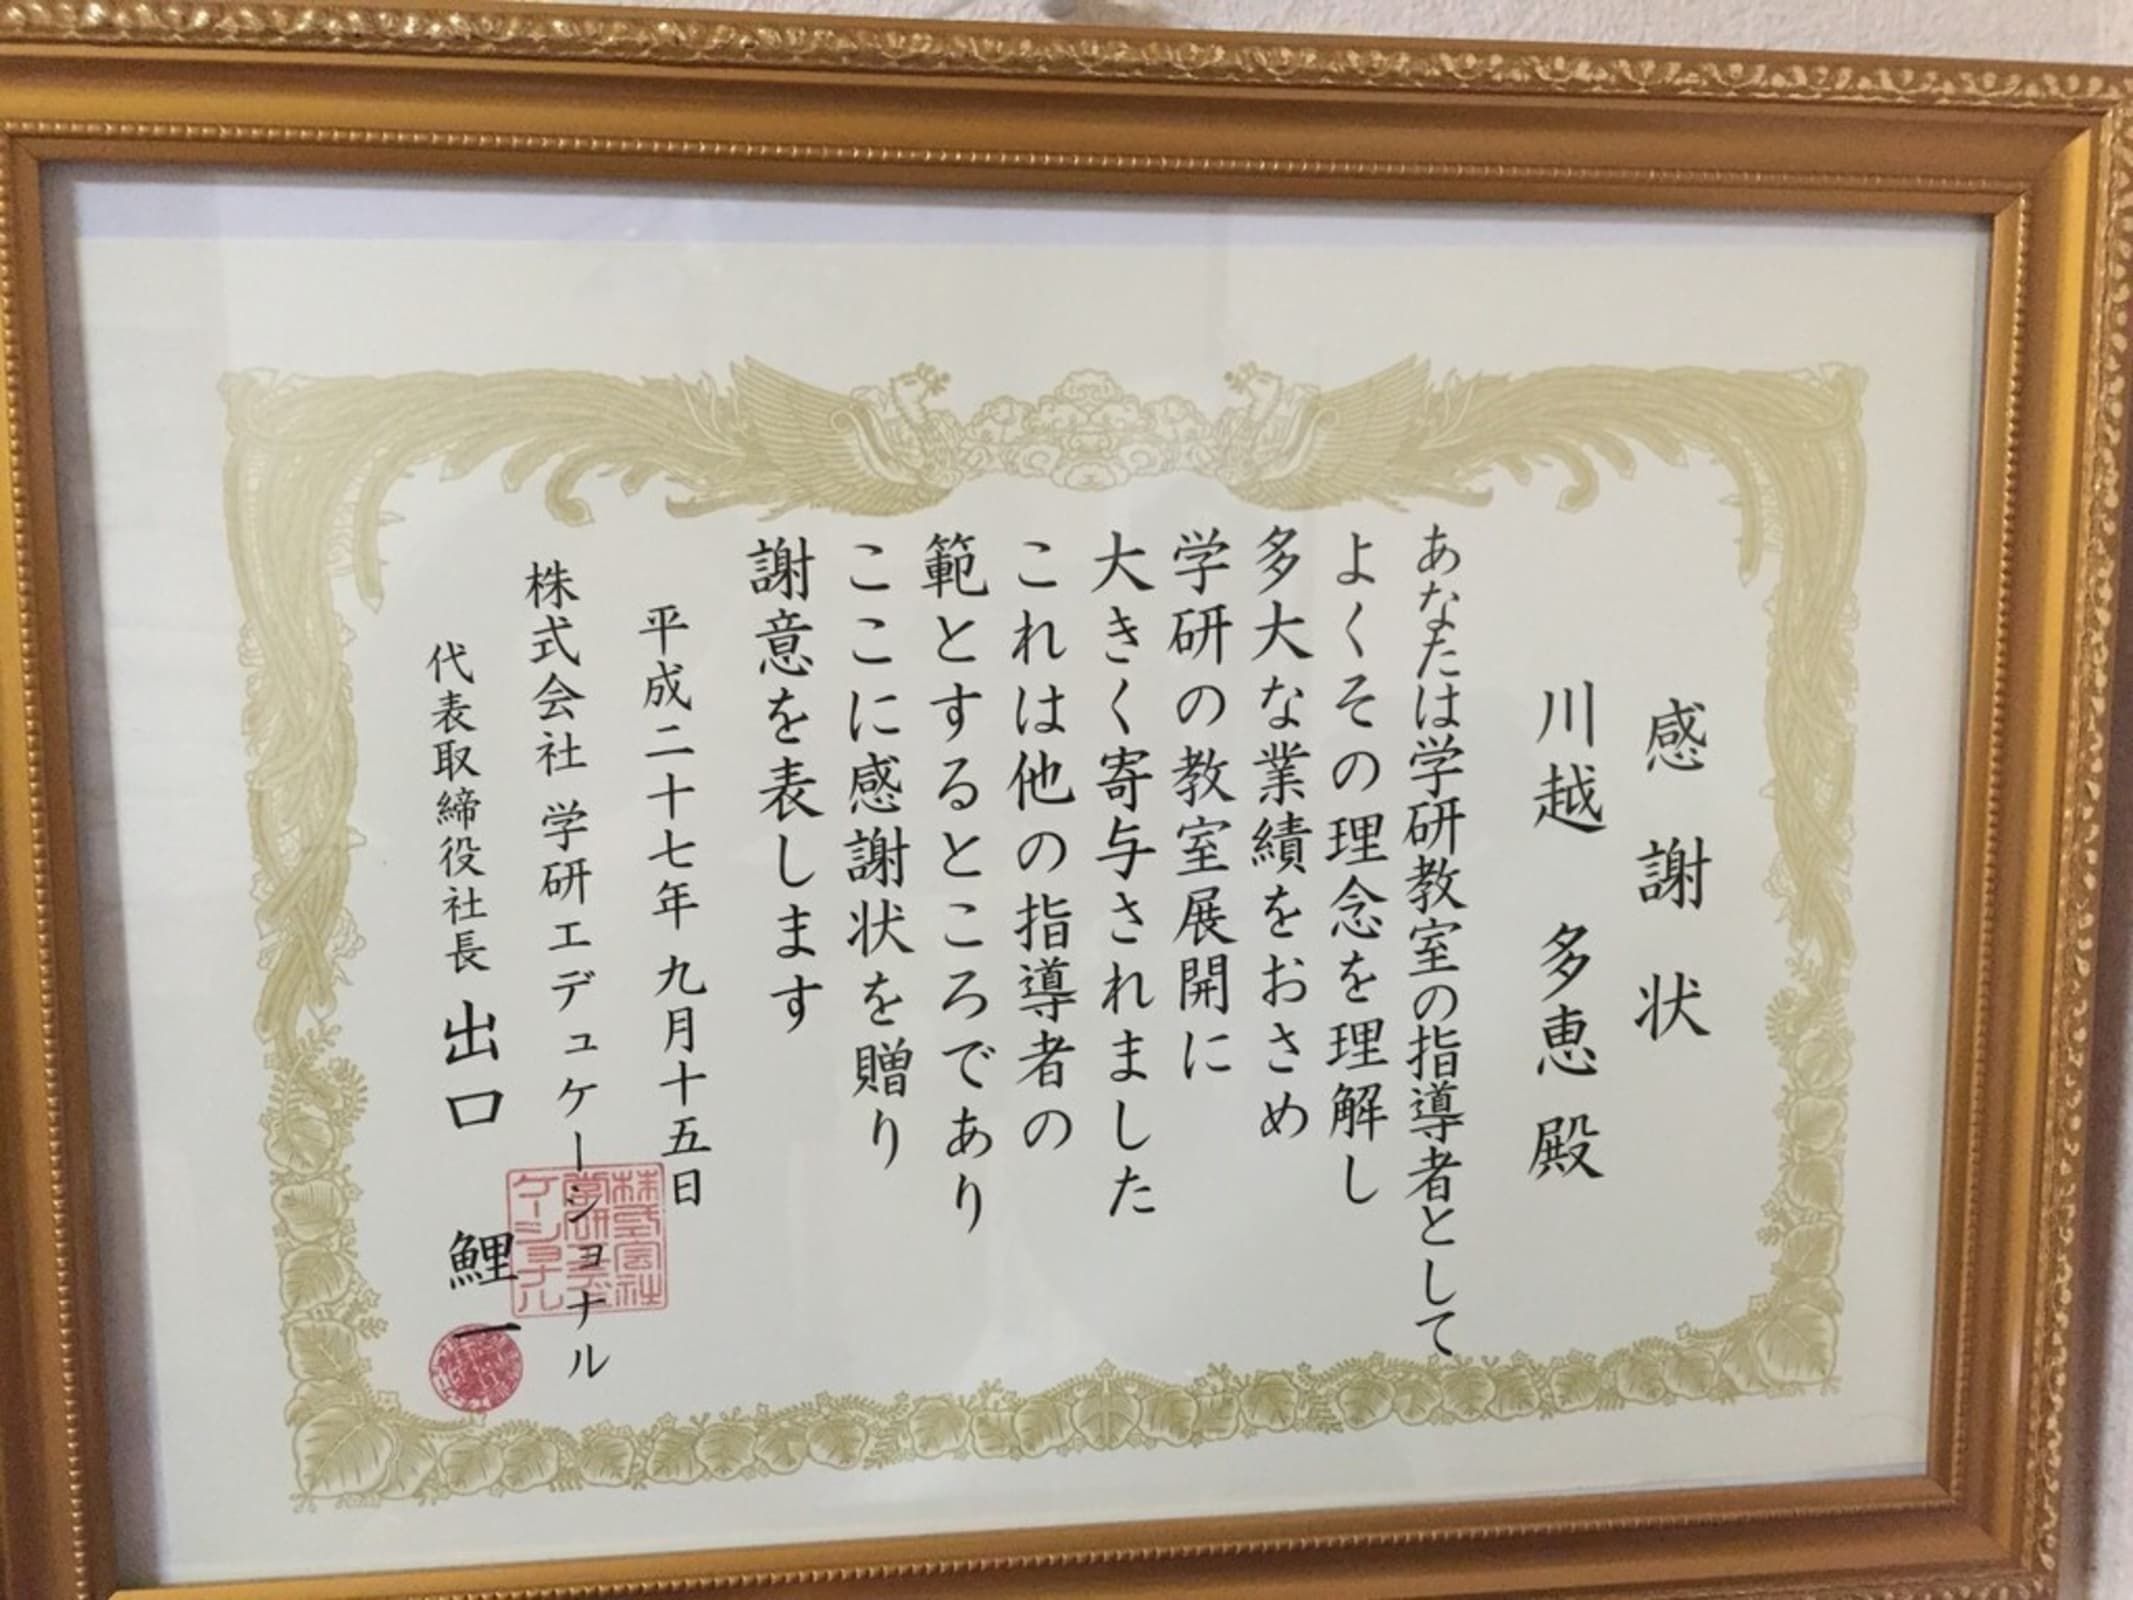 感謝状
川越 多恵 殿
あなたは学研教室の指導者として
よくその理念を理解し
多大な業績をおさめ
学研の教室展開に
大きく寄与されました
これは他の指導者の
範とするところであり
ここに感謝状を贈り
謝意を表します
平成二十七年 九月十五日
株式会社 学研エデュケーショナル
代表取締役社長 出口 鯉一
株式会社
学研エデュ
ケーショナル